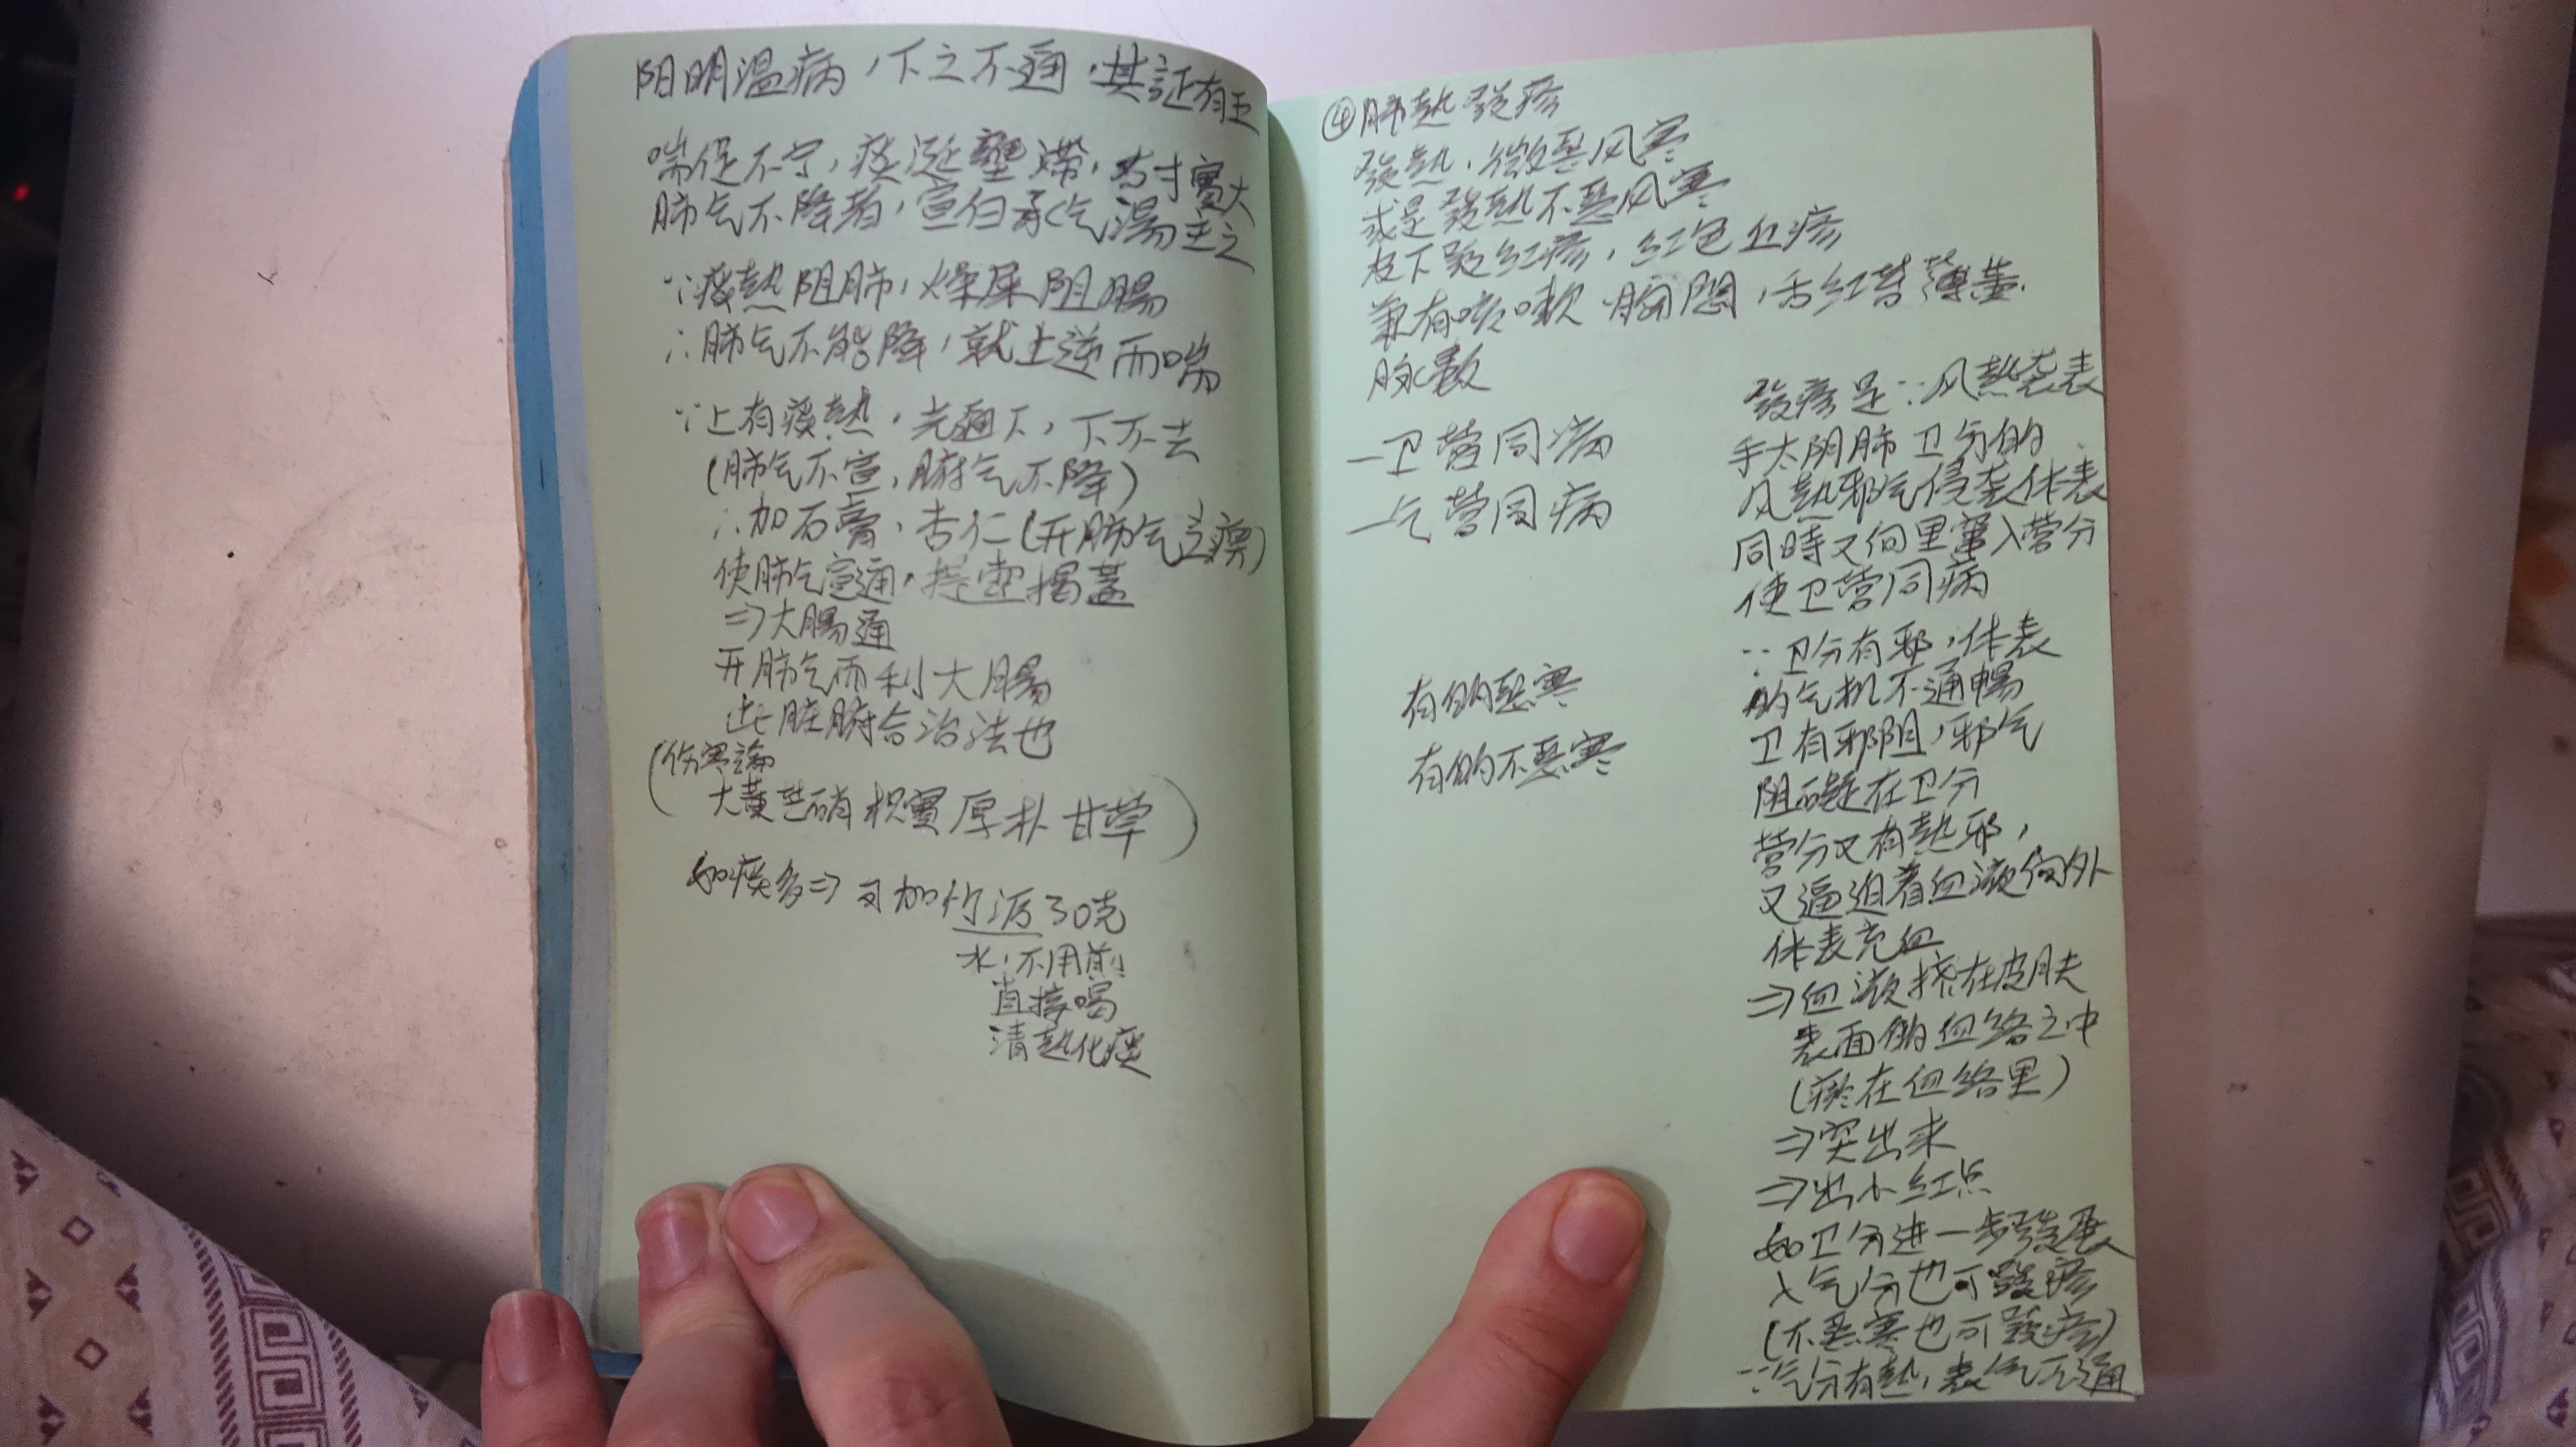 阳明温病，下之不通，其証有五
喘促不宁，痰涎壅滞，右寸實大
肺气不降者，宣白承气湯主之
∵痰熱阻肺，燥屎阻腸
∴肺气不能降，就上逆而喘
∵上有痰熱，光通下，下不去
(肺气不宣，腑气不降)
∴加石膏，杏仁(开肺气之痹)
使肺气宣通，提壶揭蓋
⇒大腸通
开肺气而利大腸
此脏腑合治法也
(伤寒論
大黄芒硝枳實厚朴甘草)
如痰多⇒可加竹沥30克
水，不用煎
直接喝
清熱化痰
④肺熱發疹
發熱，微惡风寒
或是發熱不惡风寒
皮下發红疹，红色丘疹
兼有咳嗽 胸悶，舌红苔薄黄
脉數
—卫营同病
—气营同病
有的惡寒
有的不惡寒
發疹是∵风熱袭表
手太阴肺卫分的
风熱邪气侵袭体表
同時又向里窜入营分
使卫营同病
∵卫分有邪，体表
的气机不通暢
卫有邪阻，邪气
阻碍在卫分
营分又有熱邪，
又逼迫着血液向外
体表充血
⇒血液挤在皮肤
表面的血络之中
(瘀在血络里)
⇒突出来
⇒出小红点
如卫分进一步發展
入气分也可發疹
(不惡寒也可發疹)
∵气分有熱，表气不通